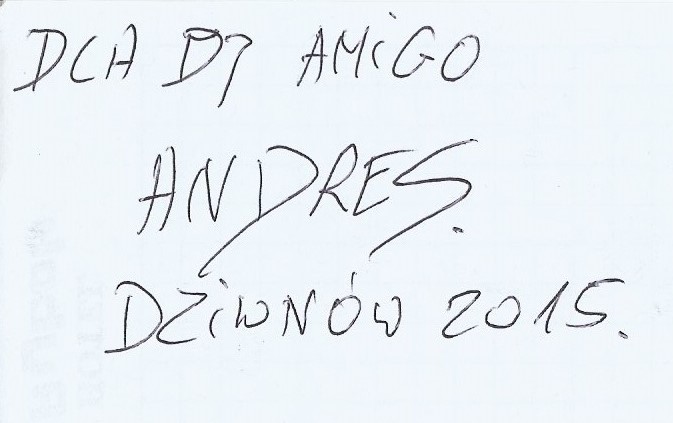 DLA DJ AMiGO
ANDRES.
DZiWNÓW 2015.